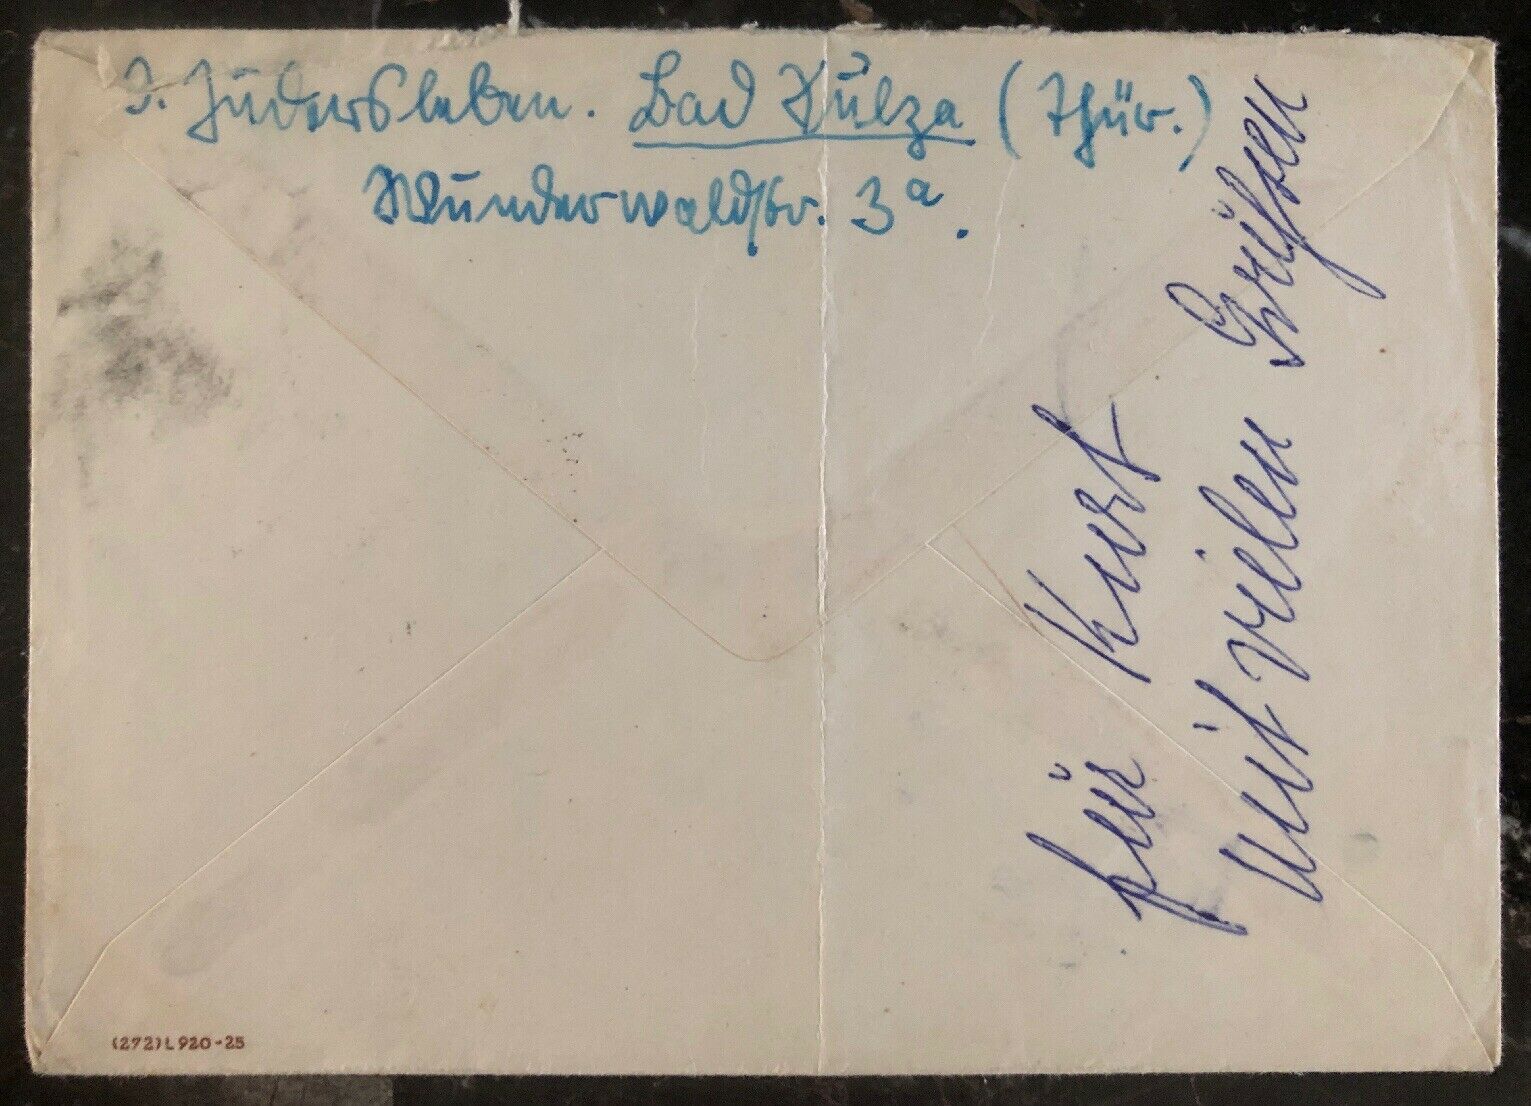 J. Judersleben. Bad Sulza (Thür.)
Wunderwaldstr. 3a.
für Kurt
mit vielen Grüßen
(272) L 920-25